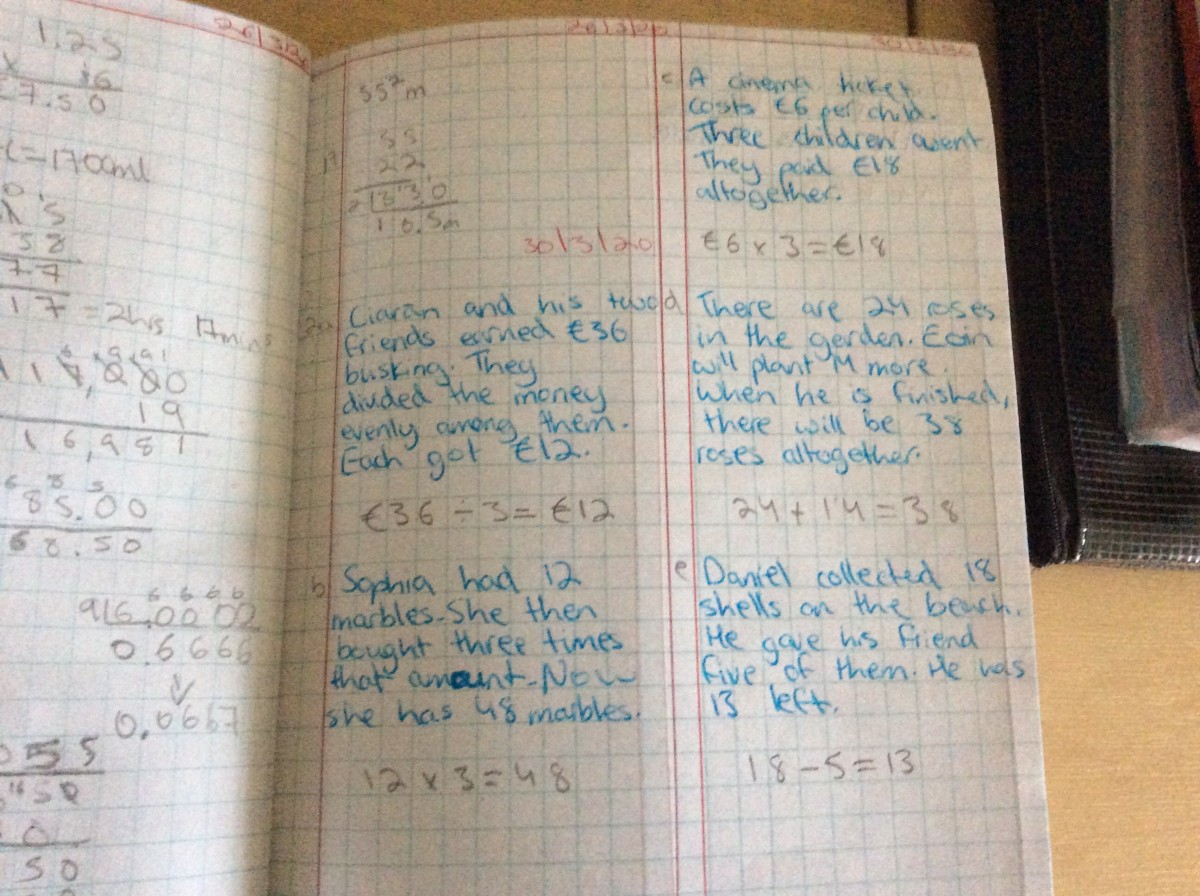 26/3/20
1.25
x 16
7.50
=1700ml
58
77
17 = 2hrs 17mins
19
16,981
85.00
68.50
9 6.0000
0.6666
0.0667
055
50
26/3/20
55²m
55
22
10.5m
30/3/20
2a Ciarán and his two
friends earned €36
busking. They
divided the money
evenly among them.
Each got €12.
€36 ÷ 3 = €12
b Sophia had 12
marbles. She then
bought three times
that amount. Now
she has 48 marbles.
12 x 3 = 48
c A cinema ticket
costs €6 per child.
Three children went
They paid €18
altogether.
€6 x 3 = €18
d There are 24 roses
in the gerden. Eoin
will plant 14 more.
When he is finished,
there will be 38
roses altogether.
24 + 14 = 38
e Daniel collected 18
shells on the beach.
He gave his friend
five of them. He has
13 left.
18 - 5 = 13